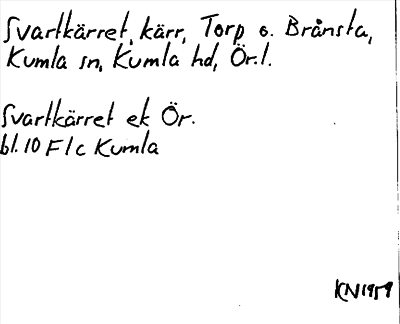 Svartkärret, kärr, Torp o. Brånsta,
Kumla sn, Kumla hd, Ör.l.
Svartkärret ek Ör.
bl. 10 F/c Kumla
KN1959